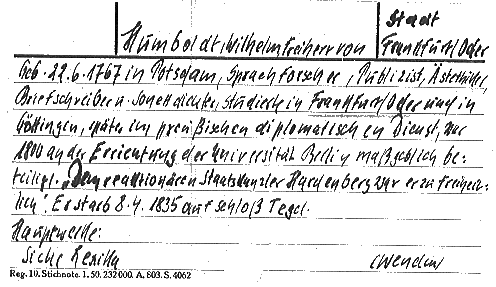 Humboldt, Wilhelm Freiherr von
Stadt
Frankfurt/Oder
Geb. 22.6.1767 in Potsdam, Sprachforscher, Publizist, Ästhetiker,
Briefschreiber u. Sonettdichter, studierte in Frankfurt/Oder und in
Göttingen, später im preußischen diplomatischen Dienst, war
1800 an der Errichtung der Universität Berlin maßgeblich be-
teiligt. „Dem reaktionären Staatskanzler Hardenberg war er zu freiheit-
lich". Er starb 8.4.1835 auf Schloß Tegel.
Hauptwerke:
Siehe Lexika
(Wenden)
Reg. 10. Stichnote. 1. 50. 232 000. A. 803. S. 4062